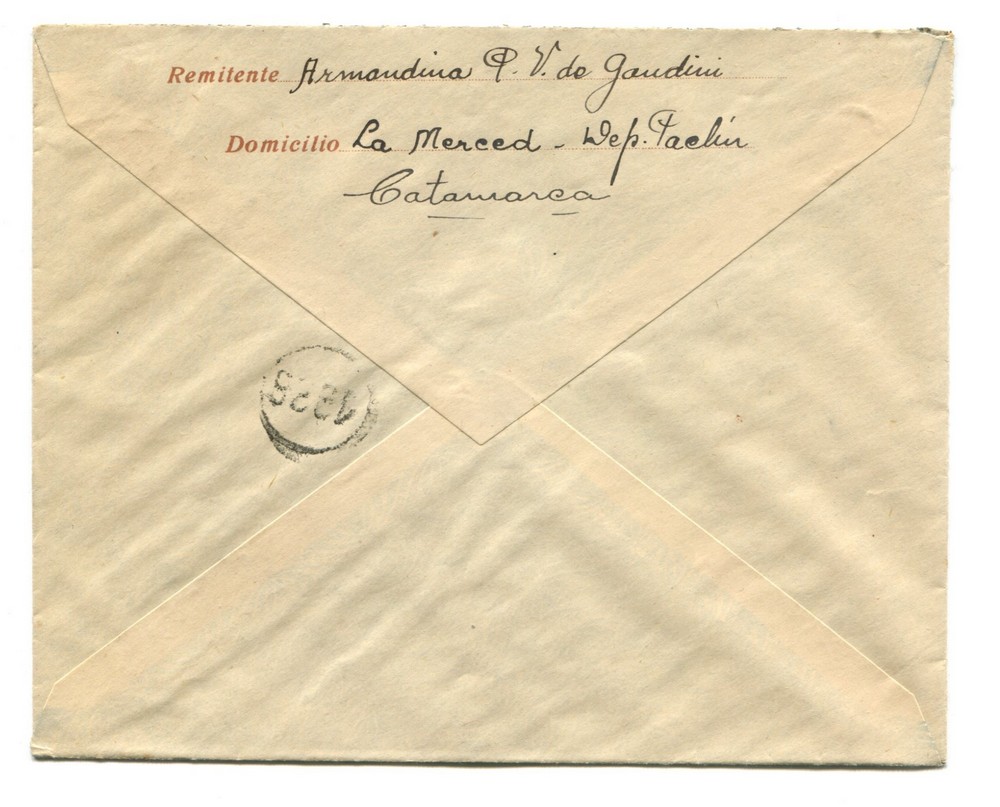 Remitente Armandina P. V. de Gandini
Domicilio La Merced - Dep. Paclín
Catamarca